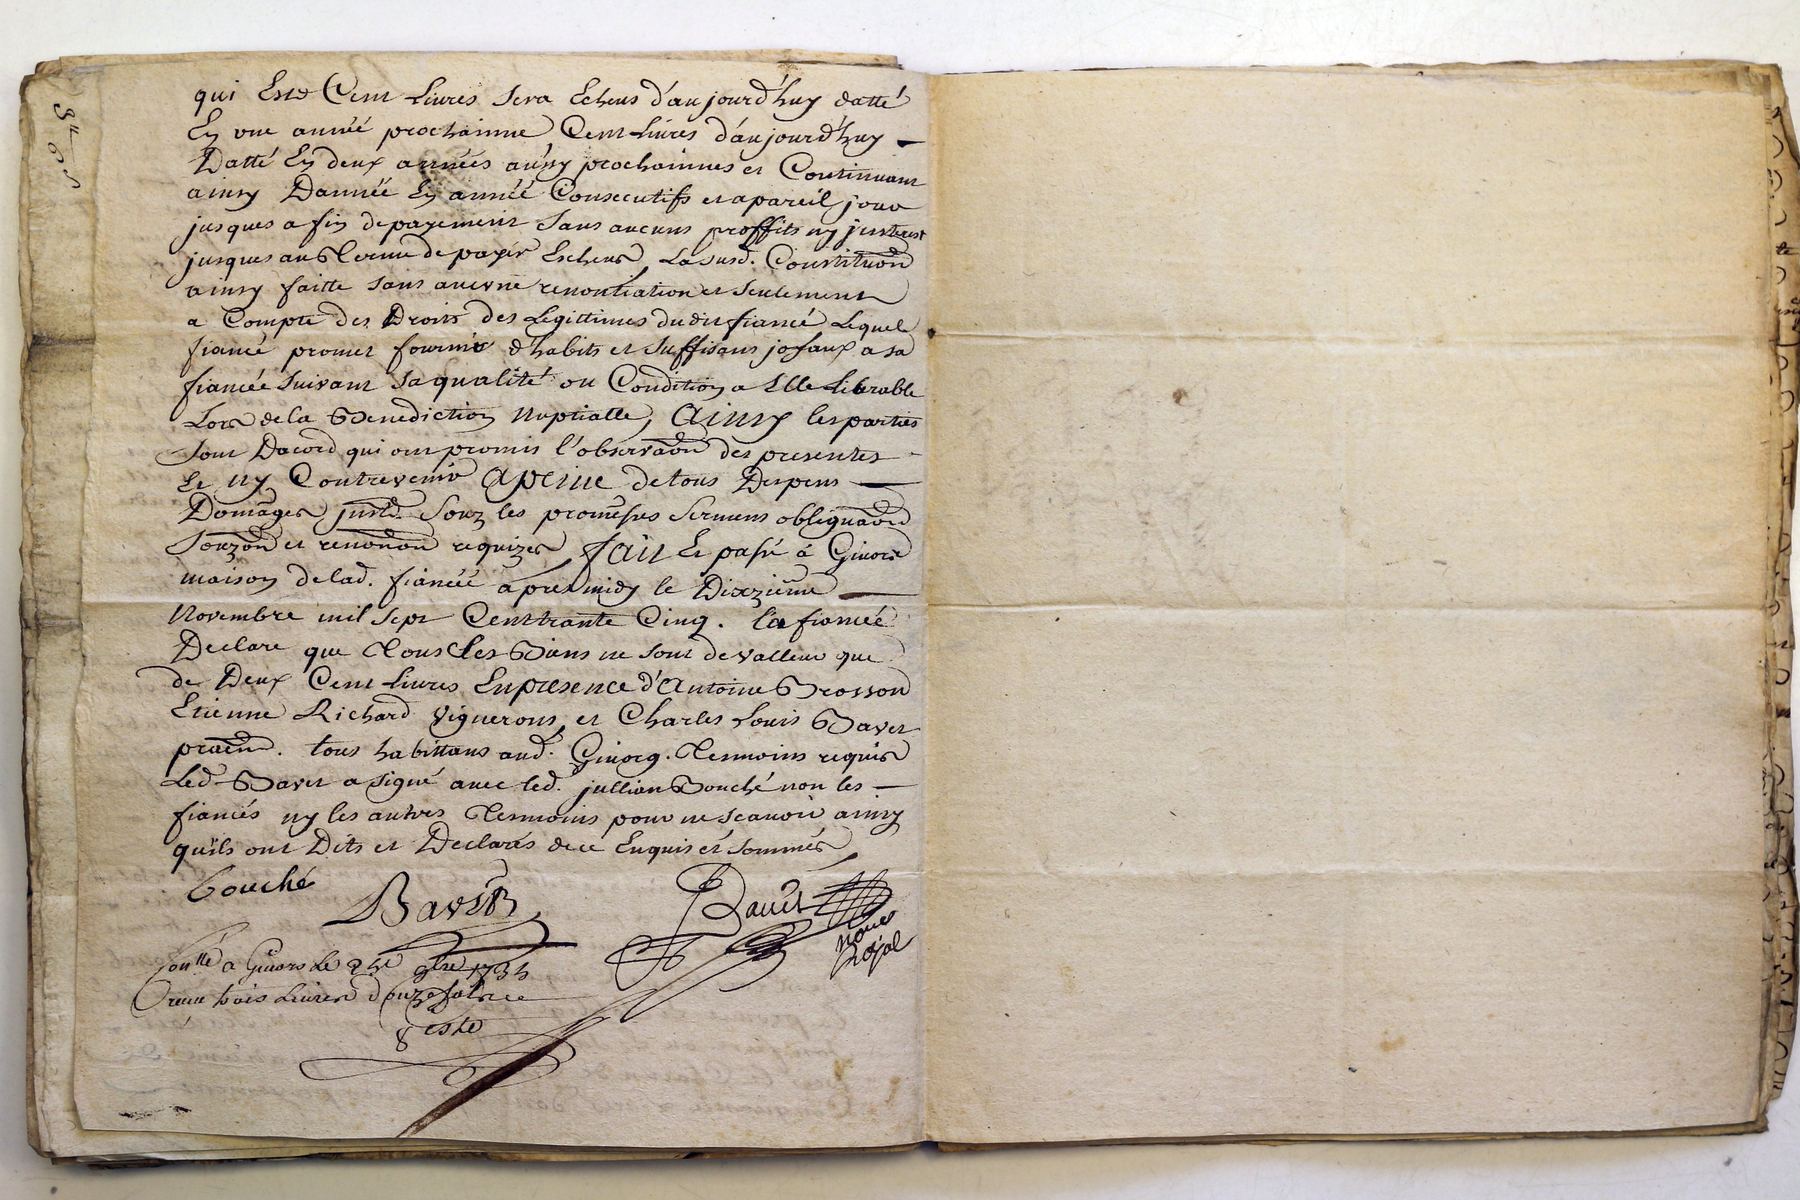 qui Este Cent Livres sera Echeus d'aujourd'huy datté
En une année prochainne Cent Livres d'aujourd'huy
Datté En deux années aussy prochainnes et Continuant
ainsy Dannée En année Consecutifs et apareil jour
jusques a fin depayement sans aucuns proffits ny jnterest
jusques aus Terme de payér Escheus, La susd. Constituon
ainsy faitte sans aucune renontiation et seulement
a Compte des Droits des Legittimes dudit fiancé Lequel
fiancé promet fournir d'habits et suffisans joyaux a sa
fiancée suivant sa qualité ou Condition a Elle Librable
Lors de la Benediction Nuptialle, Ainsy les parties
sont Dacord qui ont promis l'observaon des presentes
Et ny Contrevenir Apeine de tous Despens
Domages jnts. Souz les promesses serment obligaon
souzon et renonon requizes, fait Et passé à Givors
maison de lad. fiancéé apres midy le Dixziême
Novembre mil sept Centtrante Cinq. la fiancéé
Declare que Tous les Biens ne sont de valleur que
de Deux Cent Livres En presence d'Antoine Brosson
Etienne Richard Vignerons, et Charles Louis Bavet
praen. tous habittans aud. Givorg. Tesmoins requis
Led. Bavet a signé avec led. jullian Bouché non les
fiancés ny les autres Tesmoins pour ne scavoir ainsy
qu'ils ont Dits et Declarés de ce Enquis et sommés
Bouché
Bavet
Bavet
Nore
Royal
Conllé a Givors Le 24e 9bre 1735
Receu trois Livres douze sols